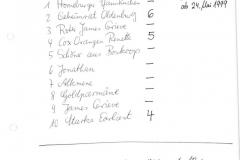 ab 24. Mai 1999
1 Homeburger Pfannkuchen —
2 Geheimrat Oldenburg 6
3 Roter James Grieve —
4 Cox Orangen Renette 5
5 Schöner aus Boskoop —
6 Jonathan —
7 Alkmene —
8 Goldparmäne —
9 James Grieve —
10 Starks Earliest 4